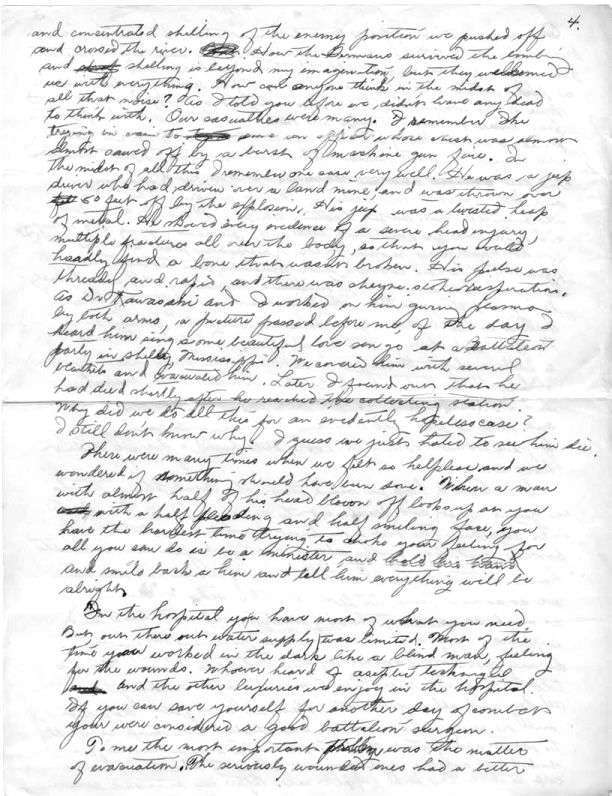 4.
and concentrated shelling of the enemy position we pushed off
and crossed the river. How the Germans survived the bomb
and shelling is beyond my imagination, but they welcomed
us with everything. How can anyone think in the midst of
all that noise? As I told you before we didn't have any lead
to think with. Our casualties were many. I remember the
trying in vain to save an officer whose waist was almost
almost sawed off by a burst of machine gun fire. In
the midst of all this I remember one case very well. He was a jeep
driver who had driven over a land mine, and was thrown over
50 feet off by the explosion. His jeep was a twisted heap
of metal. He had every evidence of a severe head injury,
multiple fractures all over the body, so that you could
hardly find a bone that wasn't broken. His pulse was
thready and rapid, and there was cheyne-stokes respiration.
As Dr. Kawasaki and I worked on him giving plasma
by both arms, a picture passed before me, of the day I
heard him sing some beautiful love song at a Battalion
party in Shelby Mississippi. We covered him with several
blankets and evacuated him. Later I found out that he
had died shortly after he reached the collecting station.
Why did we do all this for an evidently hopeless case?
I still don't know why. I guess we just hated to see him die.
There were many times when we felt so helpless and we
wondered if something should have been done. When a man
with almost half of his head blown off looks up on you
with a half pleading and half smiling face, you
have the hardest time trying to choke your feeling for
all you can do is be a minister and hold his hand
and smile back a him and tell him everything will be
alright.
In the hospital you have most of what you need.
But out there out water supply was limited. Most of the
time you worked in the dark like a blind man, feeling
for the wounds. Whoever heard of aseptic
and the other luxuries we enjoy in the hospital.
If you can save yourself for another day of combat
your were considered a good battalion surgeon.
To me the most important was the matter
of evacuation. The seriously wounded ones had a better